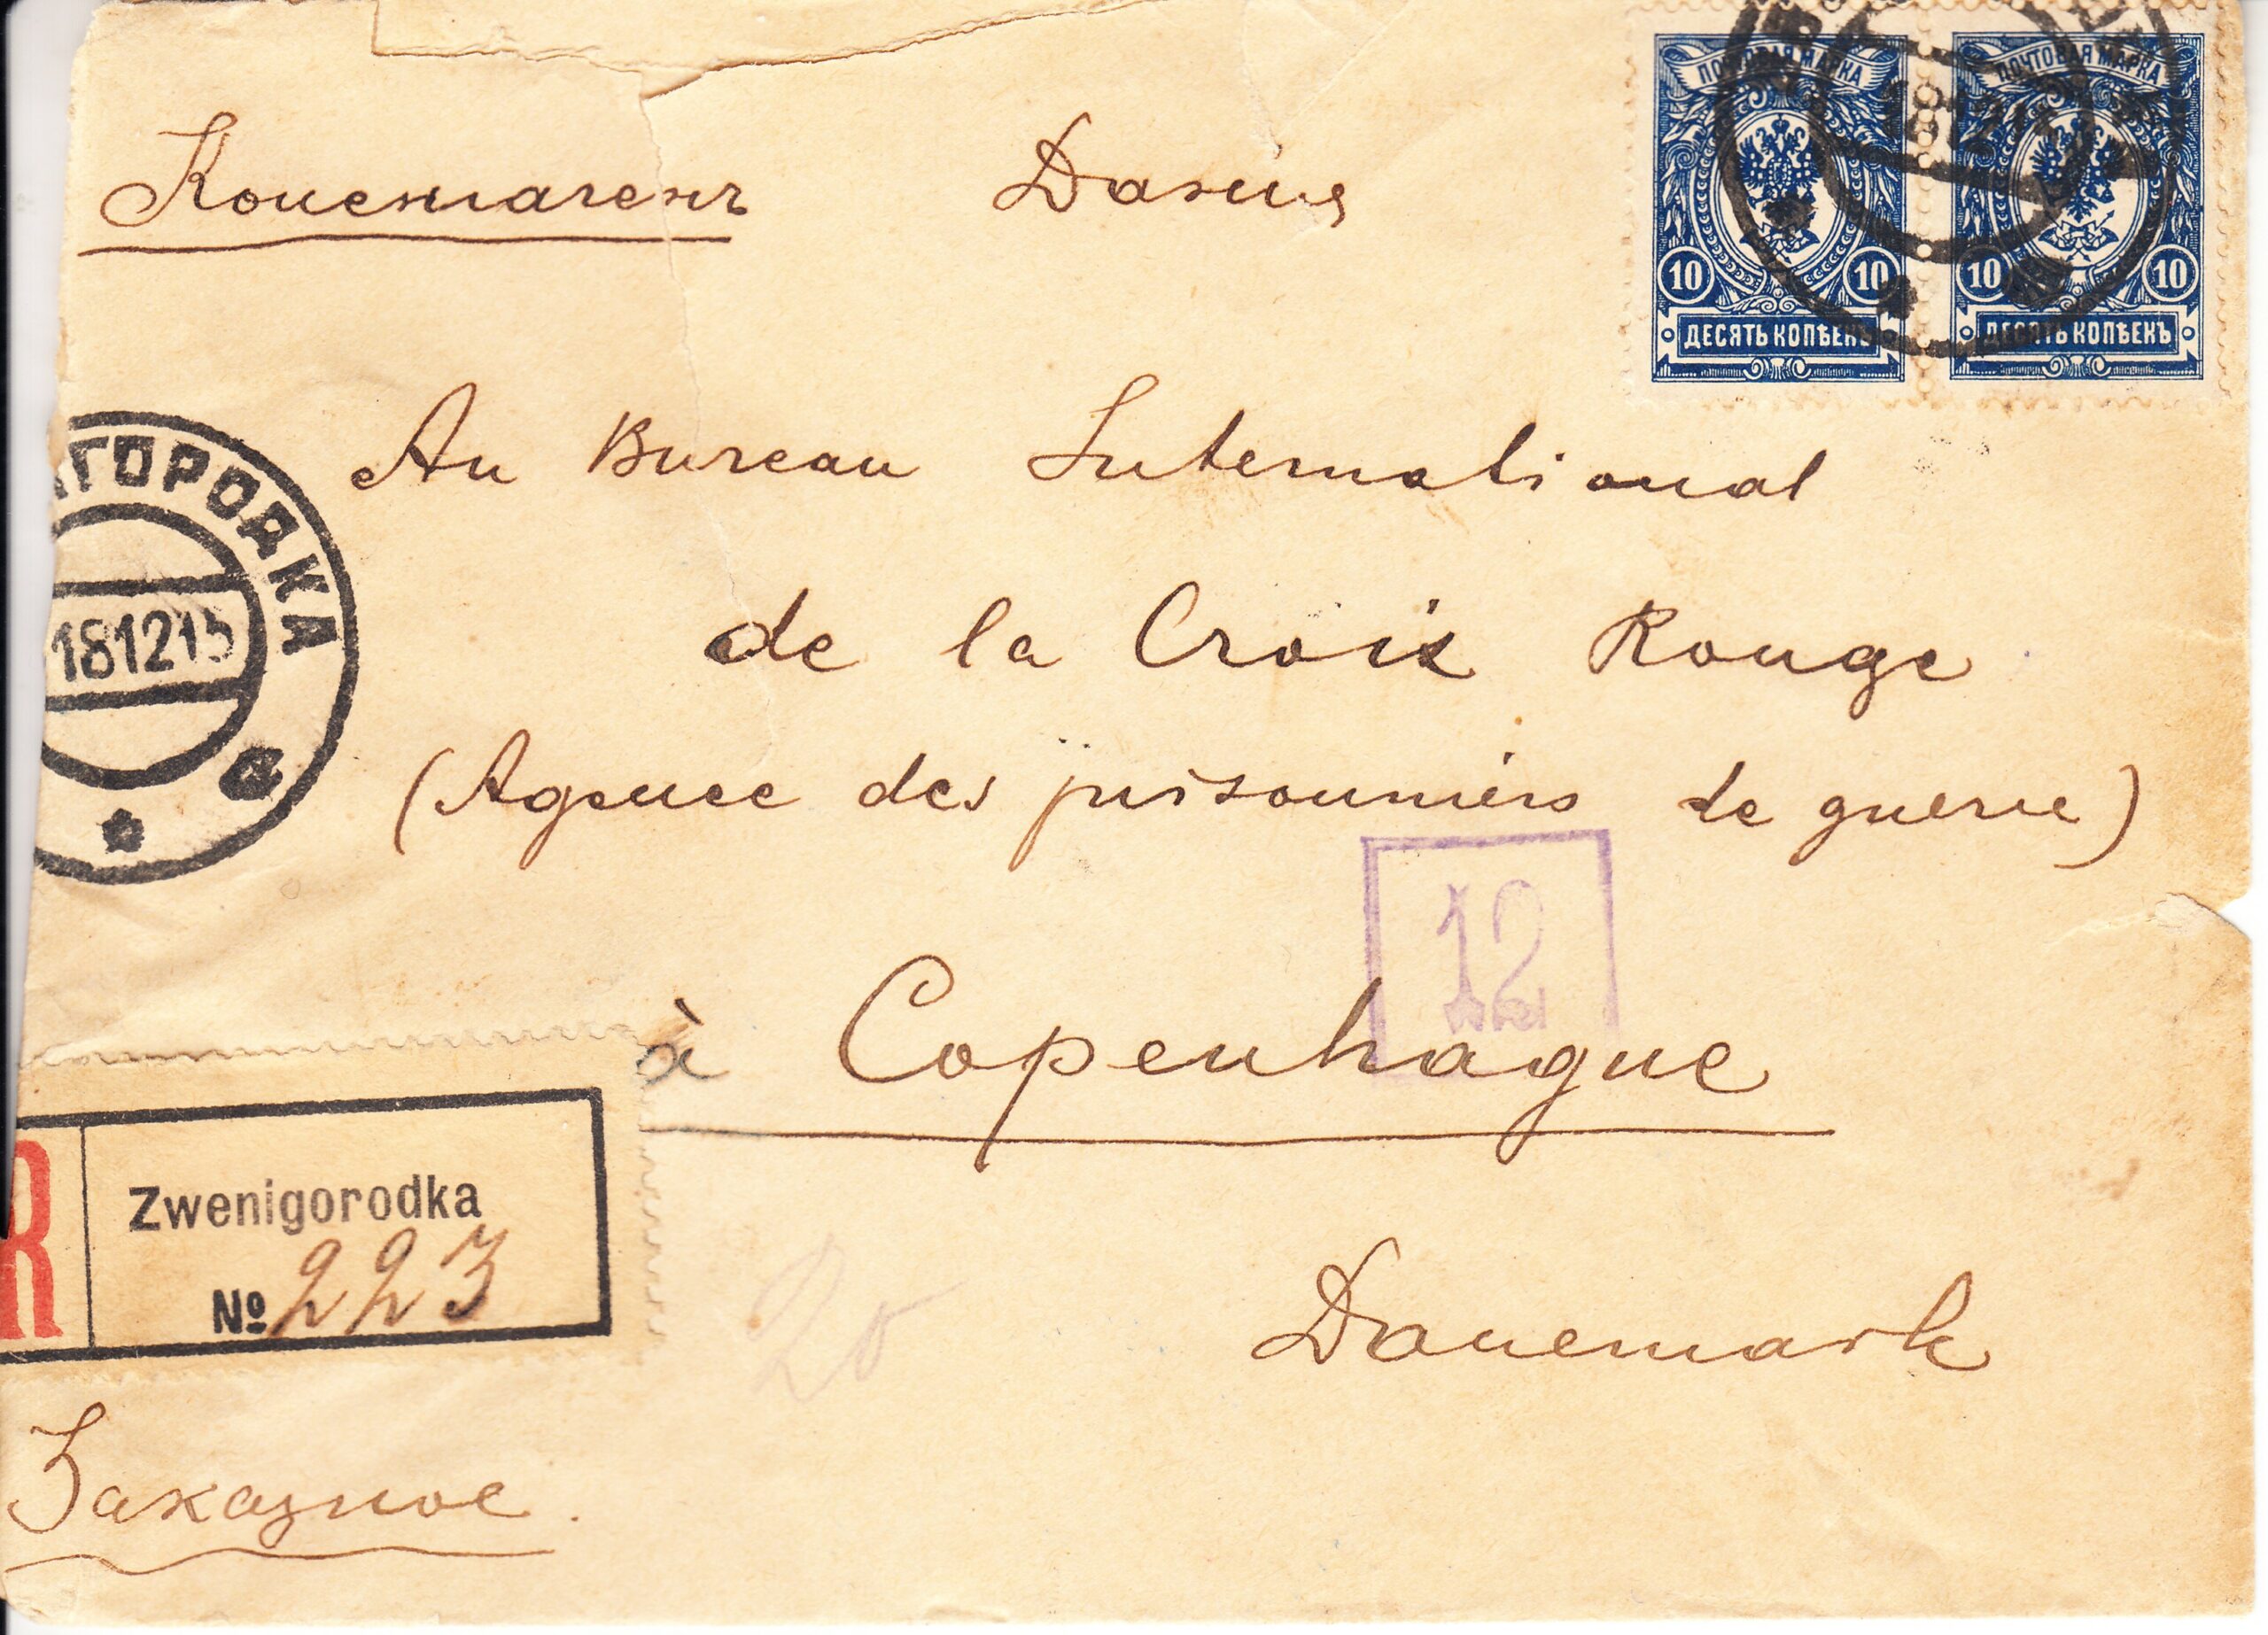 Копенгагенъ Данія
ПОЧТОВАЯ МАРКА ПОЧТОВАЯ МАРКА
10 10 10 10
ДЕСЯТЬ КОПѢЕКЪ ДЕСЯТЬ КОПѢЕКЪ
Au Bureau International
ГОРОДКА
181215
de la Croix Rouge
(Agence des prisonniers de guerre)
12
à Copenhague
R Zwenigorodka
№ 223
20
Danemark
Заказное.